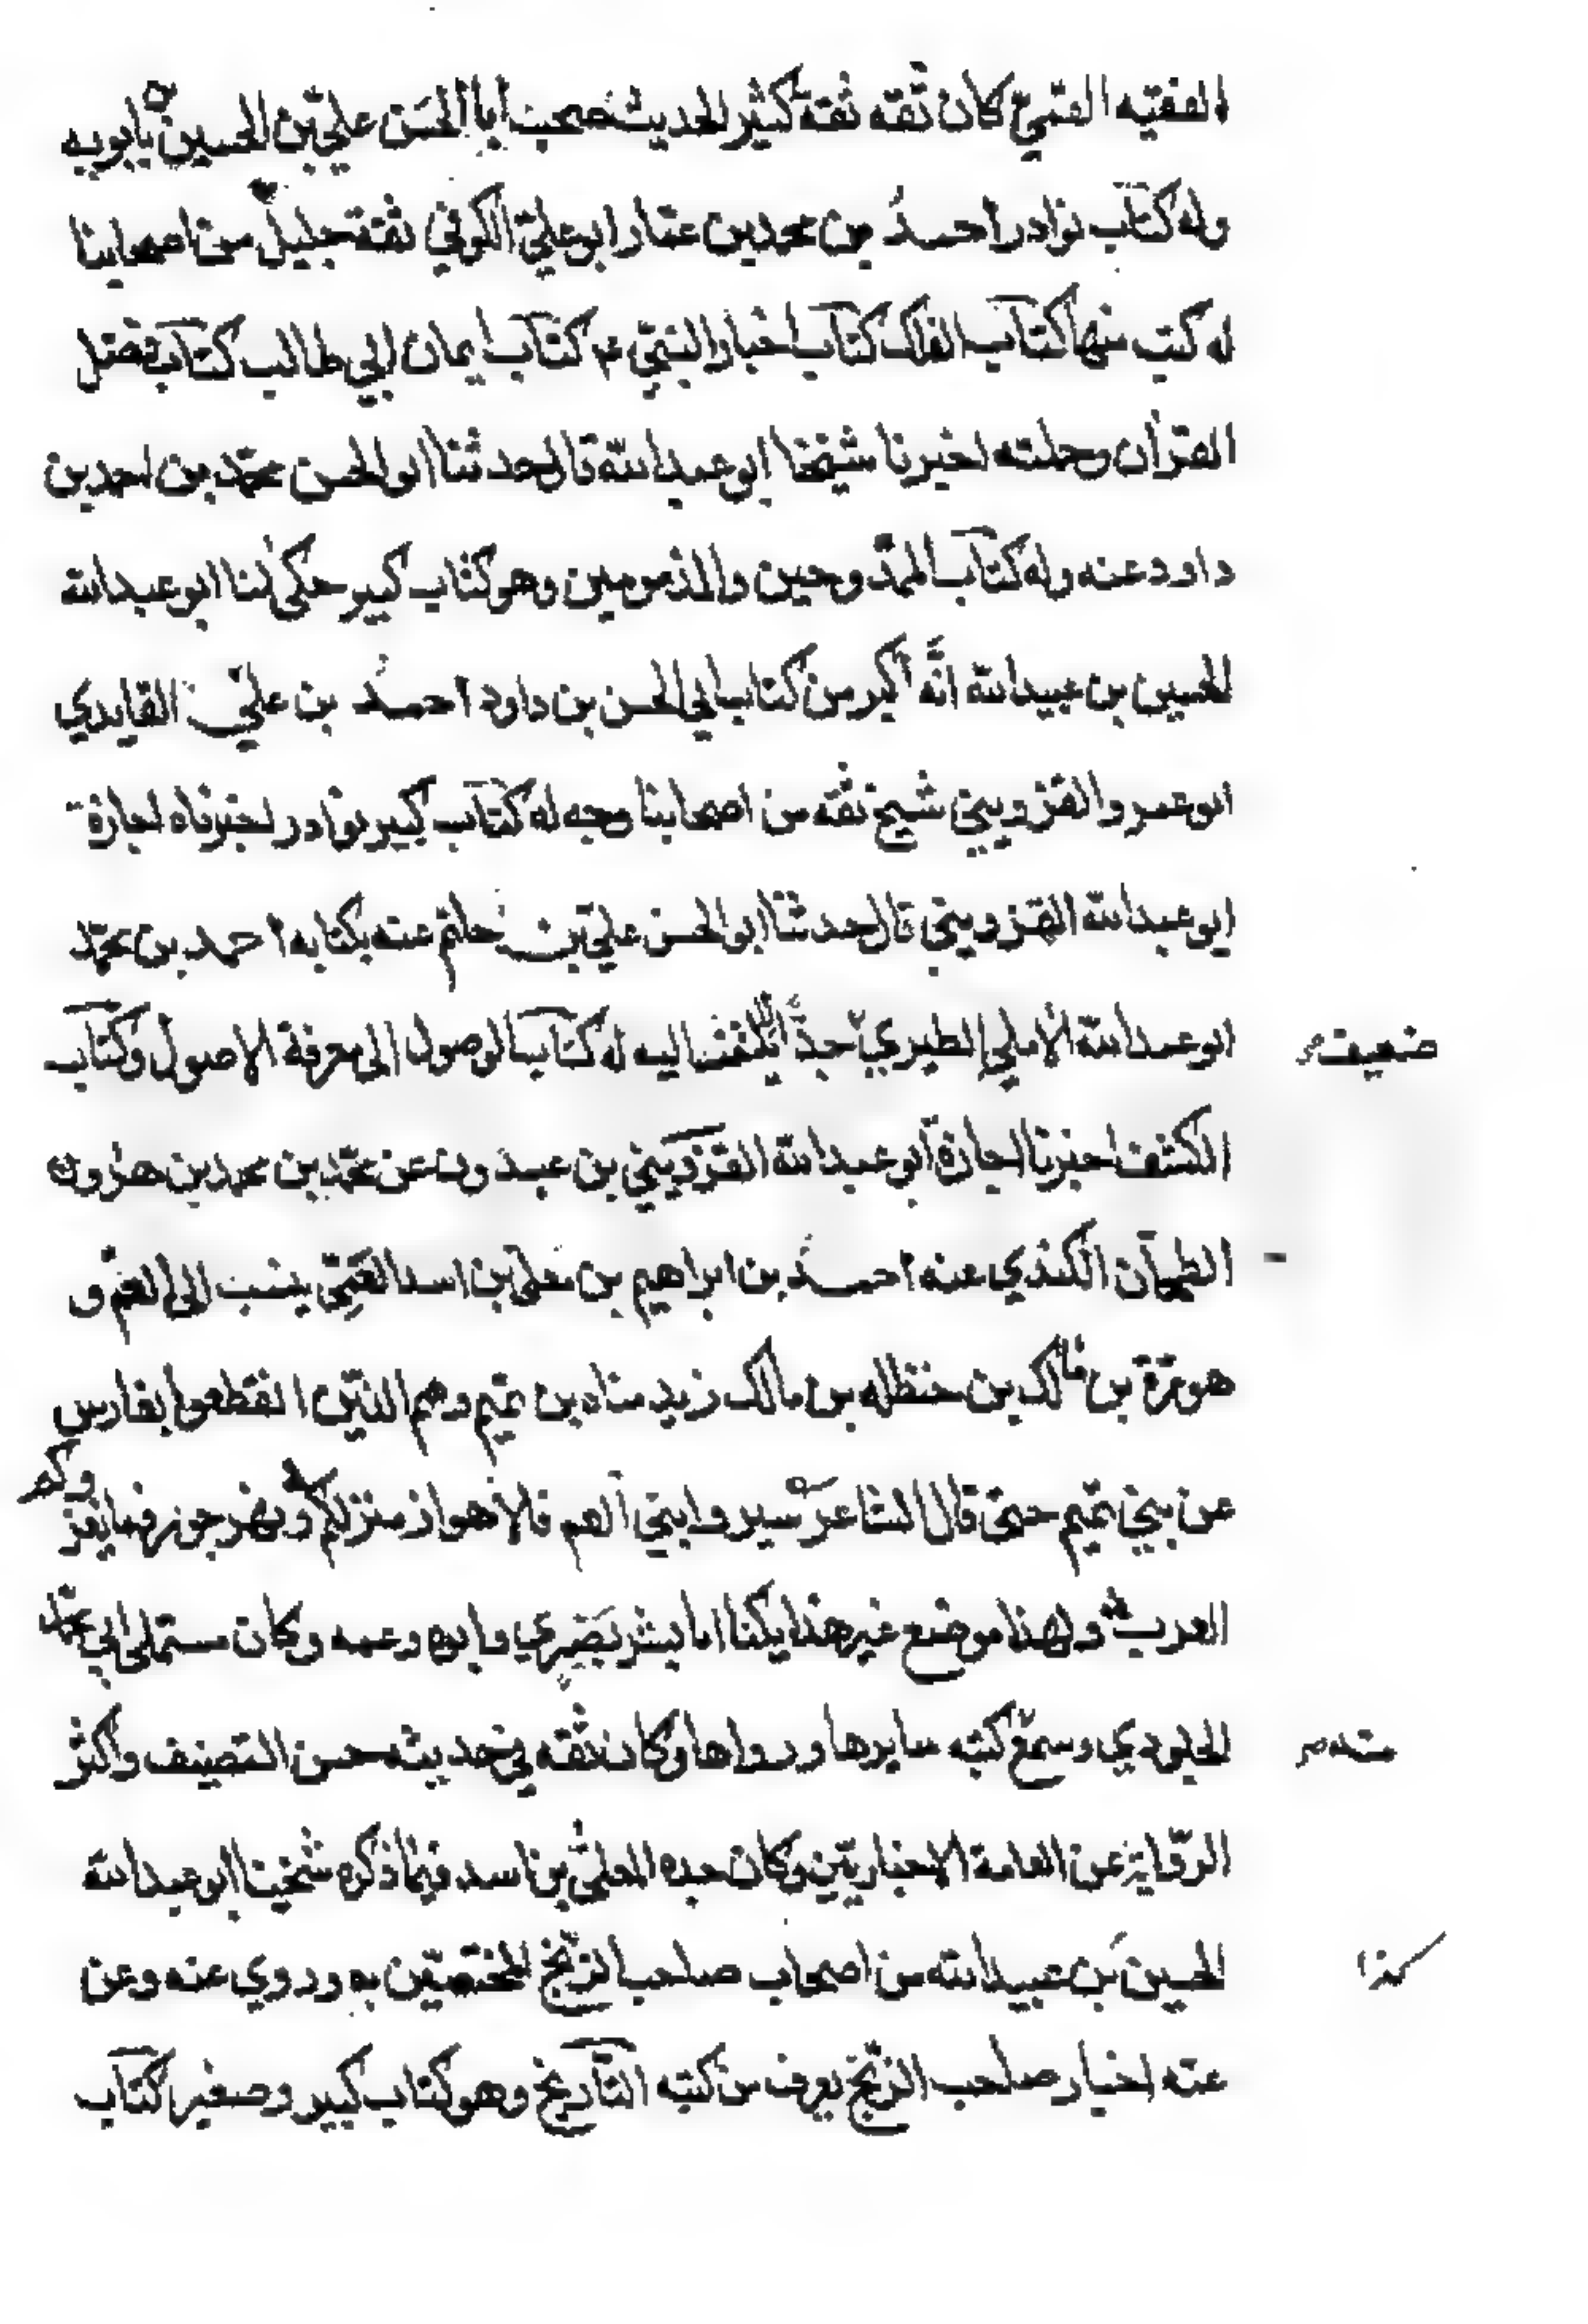 الفقيه القمي كان ثقه ثقة كثير الحديث صحب ابا الحسن علي بن الحسين بابويه
وله كتاب نوادر احمد بن محمد بن عمار ابو علي الكوفي ثقة جليل من اصحابنا
له كتب منها كتاب الفلك كتاب اخبار النبي ع م كتاب ايمان ابي طالب كتاب فضل
القرآن وحملته اخبرنا شيخنا ابو عبد الله قال حدثنا ابو الحسن محمد بن احمد بن
داود عنه وله كتاب الممدوحين والمذمومين وهو كتاب كبير حكى لنا ابو عبد الله
الحسين بن عبيد الله انه اكبر من كتاب ابي الحسن بن داود احمد بن علي القايدي
ابو عمر والقزويني شيخ ثقه من اصحابنا وجه له كتاب كبير نوادر اخبرناه اجازة
ابو عبد الله القزويني قال حدثنا ابو الحسن علي بن حاتم عنه بكتابه احمد بن محمد
ضعيف
ابو عبد الله الآملي الطبري جدا يلتفت اليه له كتاب الوصول الى معرفة الاصول وكتاب
الكشف اخبرنا اجازة ابو عبد الله القزويني بن عبدون عن محمد بن محمد بن هرون
الطحان الكندي عنه احمد بن ابراهيم بن معلى بن اسد العمي ينسب الى العم و
هو مرة بن مالك بن حنظله بن مالك زيد مناه بن تميم وهم الذين انقطعوا بفارس
عن بني تميم حتى قال الشاعر سيروا بني العم فالاهواز منزلكم ونهر جور فما يعرفكم
العرب ولهذا موضع غير هذا يكنا ابا بشر بصري وابوه وعمه وكان مستملى ابي محمد
الجلودي وسمع كتبه سايرها ورواها وكان ثقه في حديثه حسن التصنيف واكثر
الرواية عن العامة الاخباريين وكان جده المعلى بن اسد فيما ذكره شيخنا ابو عبد الله
كذا
الحسين بن عبيد الله من اصحاب صاحب الزنج المختصين به وروي عنه وعن
عمه اخبار صاحب الزنج يعرف من كتبه التاريخ وهو كتاب كبير وصغير كتاب